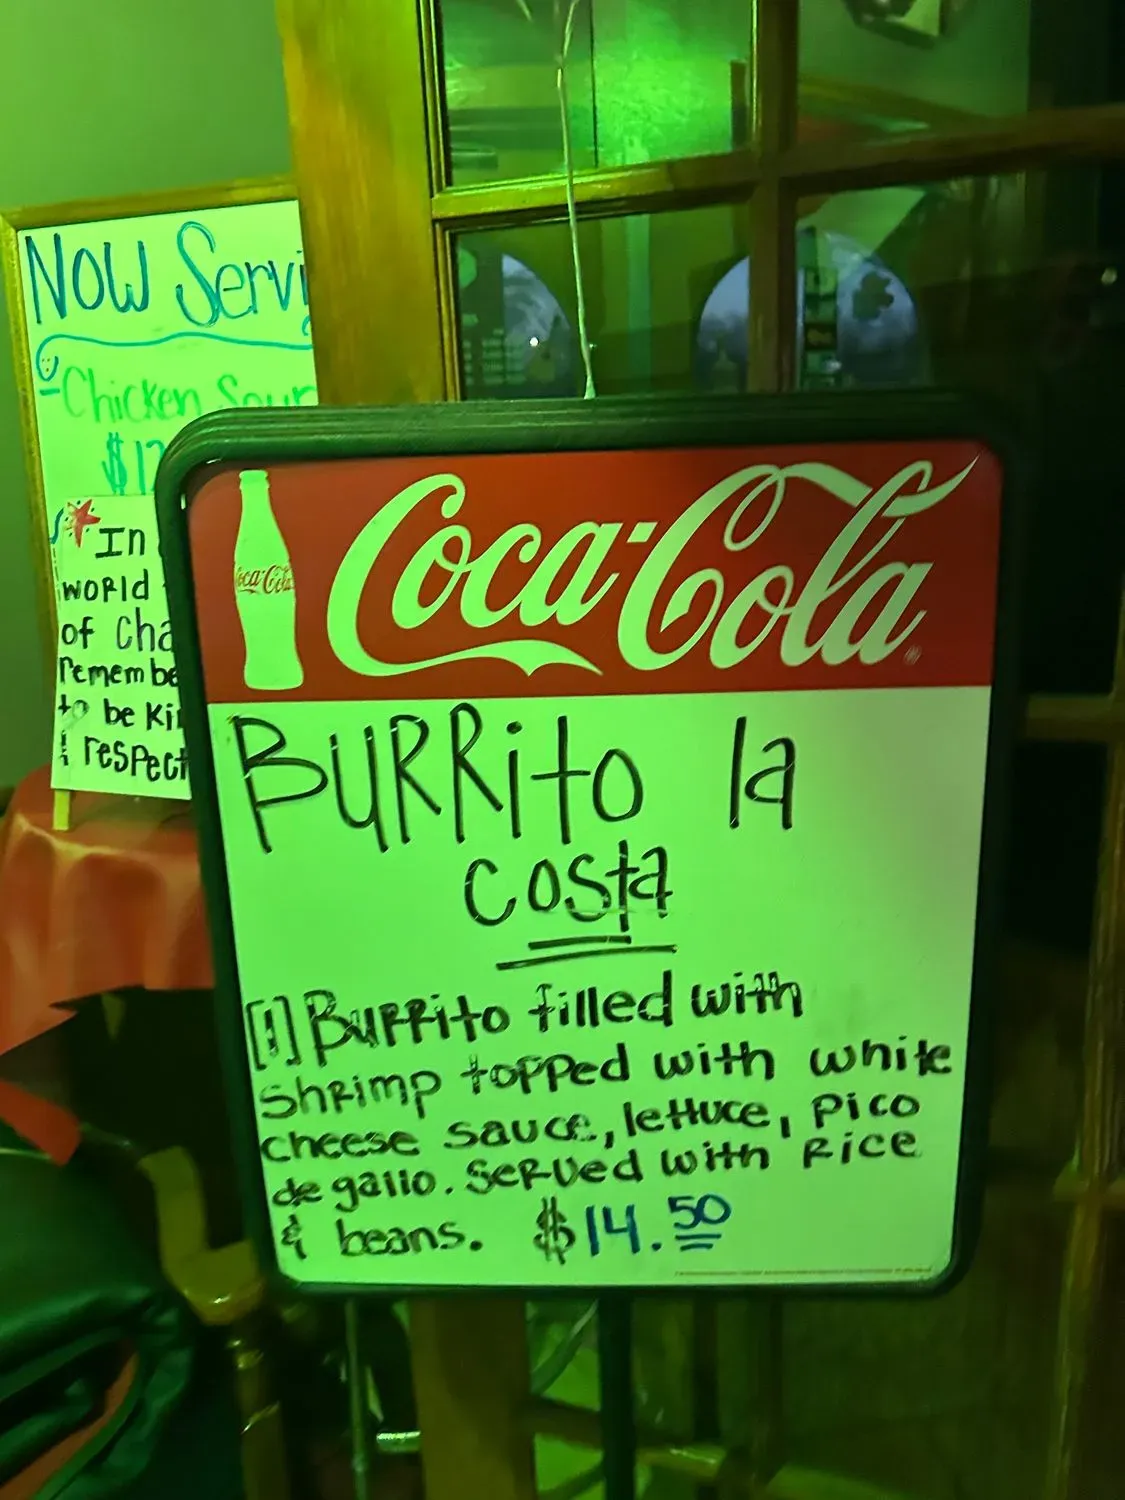 NOW Servi
-Chicken Soup
$12
In
world
of Cha
remembe
to be Ki
& respect
Coca-Cola
Coca-Cola
BURRito la
costa
[1] Burrito filled with
shrimp topped with white
cheese sauce, lettuce, pico
de gallo. Served with Rice
& beans. $14.50